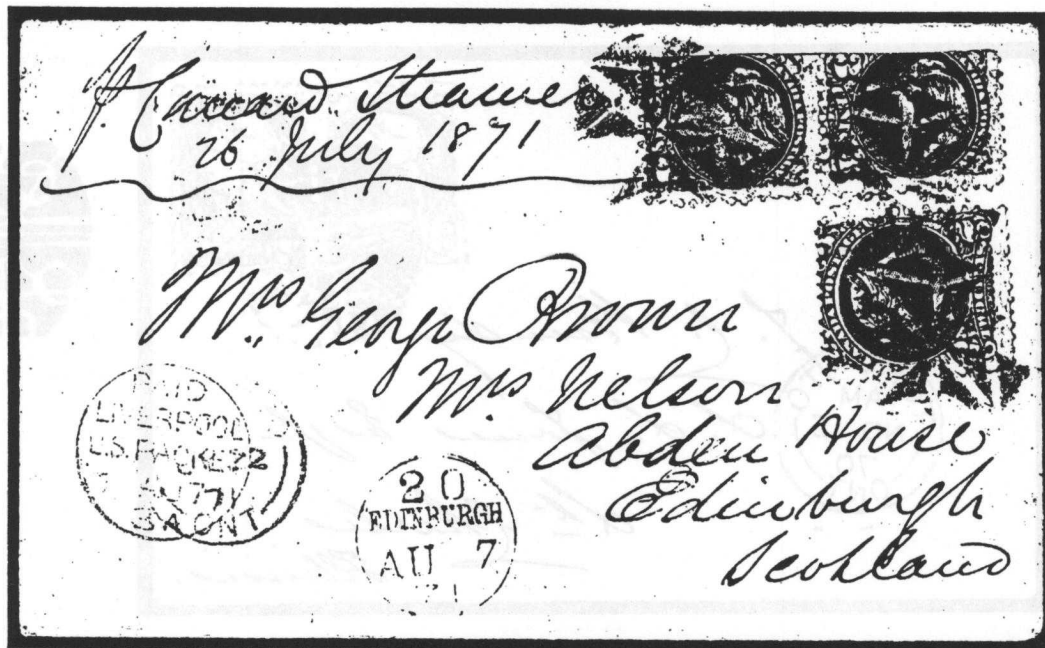 Steamer
26 July 1871
Mrs George Brown
Mrs Nelson
Abden House
Edinburgh
Scotland
PAID
LIVERPOOL
U.S. PACKET
20
EDINBURGH
AU 7